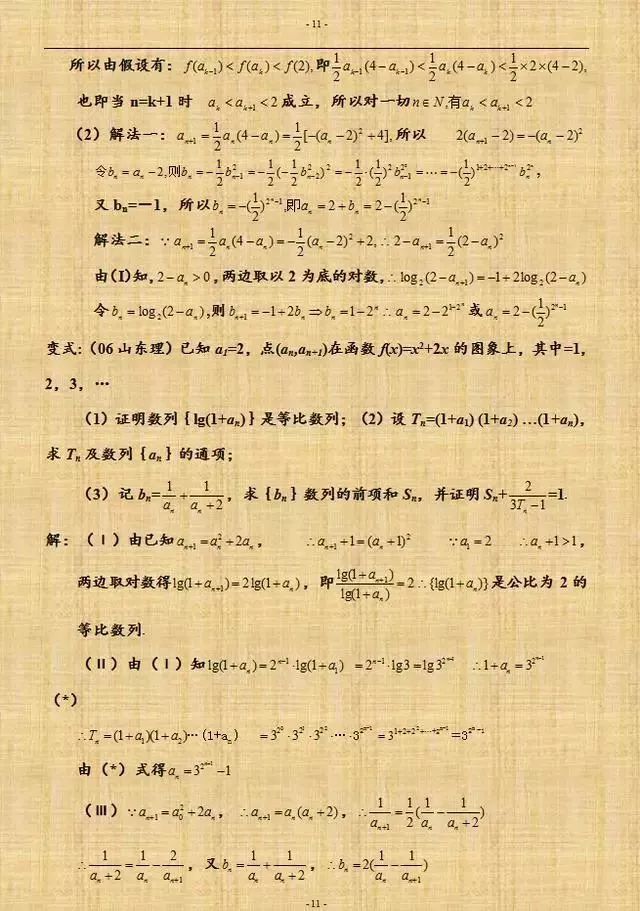 - 11 -
所以由假设有：f(a_{k-1})<f(a_k)<f(2),即\frac{1}{2}a_{k-1}(4-a_{k-1})<\frac{1}{2}a_k(4-a_k)<\frac{1}{2}×2×(4-2),
也即当 n=k+1 时 a_k<a_{k+1}<2 成立，所以对一切n∈N,有a_k<a_{k+1}<2
（2）解法一：a_{n+1}=\frac{1}{2}a_n(4-a_n)=\frac{1}{2}[-(a_n-2)^2+4],所以 2(a_{n+1}-2)=-(a_n-2)^2
令b_n=a_n-2,则b_n=-\frac{1}{2}b_{n-1}^2=-\frac{1}{2}(-\frac{1}{2}b_{n-2}^2)^2=-\frac{1}{2}·(\frac{1}{2})^2b_{n-1}^{2^2}=…=-(\frac{1}{2})^{1+2+…+2^{n-1}}b_n^{2^n},
又 b_n=－1，所以b_n=-(\frac{1}{2})^{2^n-1},即a_n=2+b_n=2-(\frac{1}{2})^{2^n-1}
解法二：∵a_{n+1}=\frac{1}{2}a_n(4-a_n)=-\frac{1}{2}(a_n-2)^2+2,∴2-a_{n+1}=\frac{1}{2}(2-a_n)^2
由(I)知,2-a_n>0，两边取以 2 为底的对数，∴log_2(2-a_{n+1})=-1+2log_2(2-a_n)
令b_n=log_2(2-a_n),则b_{n+1}=-1+2b_n⇒b_n=1-2^n∴a_n=2-2^{1-2^n}或a_n=2-(\frac{1}{2})^{2^n-1}
变式：（06 山东理）已知 a_1=2，点(a_n,a_{n+1})在函数 f(x)=x^2+2x 的图象上，其中=1，
2，3，…
（1）证明数列｛lg(1+a_n)｝是等比数列；（2）设 T_n=(1+a_1) (1+a_2) …(1+a_n)，
求 T_n 及数列｛a_n｝的通项；
（3）记 b_n=\frac{1}{a_n}+\frac{1}{a_n+2}，求｛b_n｝数列的前项和 S_n，并证明 S_n+\frac{2}{3T_n-1}=1.
解：（Ⅰ）由已知a_{n+1}=a_n^2+2a_n， ∴a_{n+1}+1=(a_n+1)^2 ∵a_1=2 ∴a_n+1>1，
两边取对数得lg(1+a_{n+1})=2lg(1+a_n)，即\frac{lg(1+a_{n+1})}{lg(1+a_n)}=2∴{lg(1+a_n)}是公比为 2 的
等比数列.
（Ⅱ）由（Ⅰ）知lg(1+a_n)=2^{n-1}·lg(1+a_1) =2^{n-1}·lg3=lg3^{2^{n-1}} ∴1+a_n=3^{2^{n-1}}
（*）
∴T_n=(1+a_1)(1+a_2)…(1+a_n) =3^{2^0}·3^{2^1}·3^{2^2}·…·3^{2^{n-1}}=3^{1+2+2^2+…+2^{n-1}}=3^{2^n-1}
由（*）式得a_n=3^{2^{n-1}}-1
（Ⅲ）∵a_{n+1}=a_0^2+2a_n，∴a_{n+1}=a_n(a_n+2)，∴\frac{1}{a_{n+1}}=\frac{1}{2}(\frac{1}{a_n}-\frac{1}{a_n+2})
∴\frac{1}{a_n+2}=\frac{1}{a_n}-\frac{2}{a_{n+1}}，又b_n=\frac{1}{a_n}+\frac{1}{a_n+2}，∴b_n=2(\frac{1}{a_n}-\frac{1}{a_{n+1}})
- 11 -